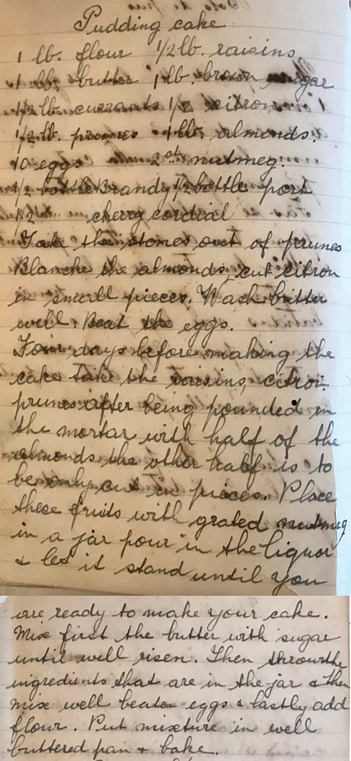 Pudding cake
1 lb. flour 1/2 lb. raisins
1 lb. butter 1 lb. brown sugar
1/2 lb. currants 1/2 citron
1/2 lb. prunes 1 lb. almonds.
10 eggs 2 nutmeg
1/2 bottle Brandy 1/2 bottle port
1/2 cherry cordial
Take the stones out of prunes
Blanche the almonds, cut citron
in small pieces. Wash butter
well. Beat the eggs.
Four days before making the
cake take the raisins, citron,
prunes after being pounded in
the mortar with half of the
almonds the other half is to
be only cut in pieces. Place
these fruits with grated nutmeg
in a jar pour in the liquor
& let it stand until you
are ready to make your cake.
Mix first the butter with sugar
until well risen. Then throw the
ingredients that are in the jar & then
mix well beaten eggs & lastly add
flour. Put mixture in well
buttered pan & bake.